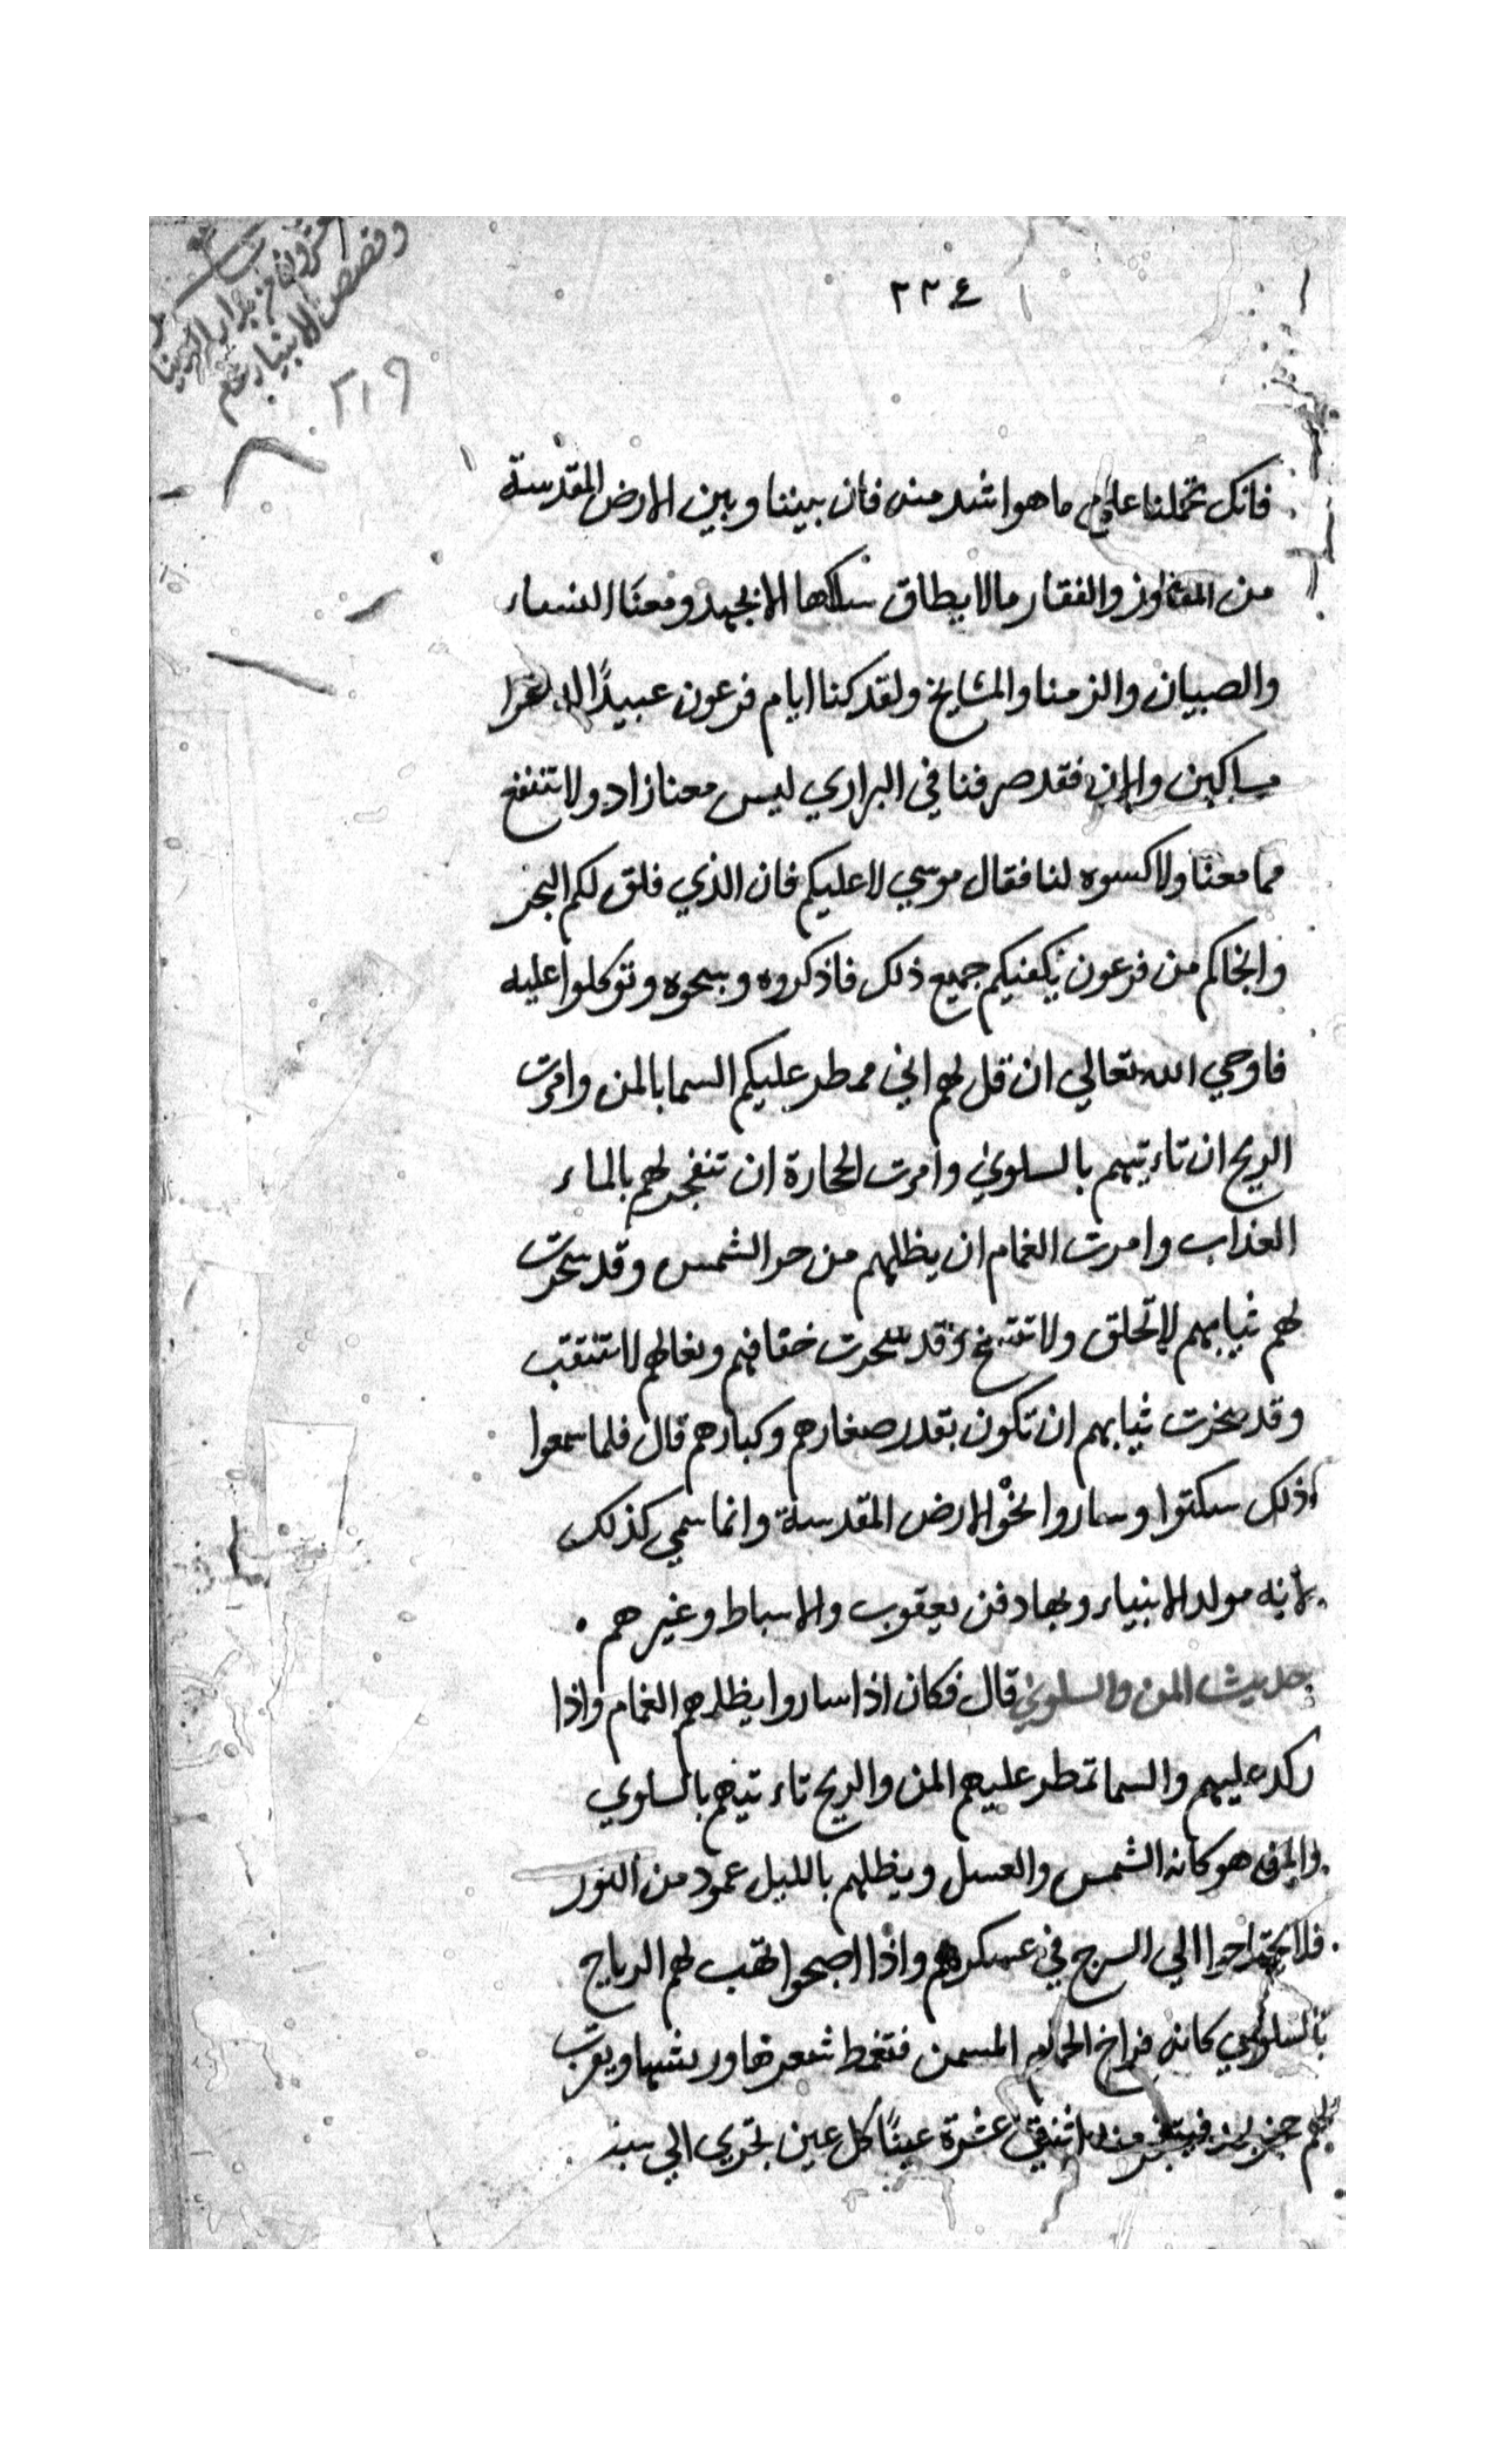 ٢٢٤
وقصص الانبيا
٢١٩
فانك تحملنا علي ما هو اشد منه فان بيننا وبين الارض المقدسة
من المفاوز والفقار مالا يطاق سلاكها الا بجهد ومعنا النساء
والصبيان والزمنا والمشايخ ولقد كنا ايام فرعون عبيدًا
مساكين والان فقد صرفنا في البراري ليس معنا زاد ولا تنتفع
مما معنا ولا كسوه لنا فقال موسي لا عليكم فان الذي فلق لكم البحر
وانجاكم من فرعون يكفيكم جميع ذلك فاذكروه وسبحوه وتوكلوا عليه
فاوحي الله تعالي ان قل لهم اني ممطر عليكم السما بالمن وامرت
الريح ان تاءتيهم بالسلوي وامرت الحجارة ان تنفجر لهم بالماء
العذاب وامرت الغمام ان يظللهم من حر الشمس وقد سخرت
لهم ثيابهم لا تخلق ولا تتسخ وقد سخرت خفافهم ونعالهم لا تنتقب
وقد سخرت ثيابهم ان تكون بقدر صغارهم وكبارهم قال فلما سمعوا
ذلك سكتوا وساروا نحو الارض المقدسة وانما سمي كذلك
لانه مولد الانبياء وبها دفن يعقوب والاسباط وغيرهم
حديث المن والسلوي قال فكان اذا ساروا يظللهم الغمام واذا
ركد عليهم والسما تمطر عليهم المن والريح تاءتيهم بالسلوي
والمن هو كانه الشمس والعسل ويظلهم بالليل عمود من النور
فلا يحتاجوا الي السرج في عسكرهم واذا اصبحوا تهب لهم الرياح
بالسلوي كانه فراخ الحمام المسمن فتمغط شعرها وريشها ويقرب
لهم حجر فيتفجر منه اثنتي عشرة عينًا كل عين تجري الي سبط